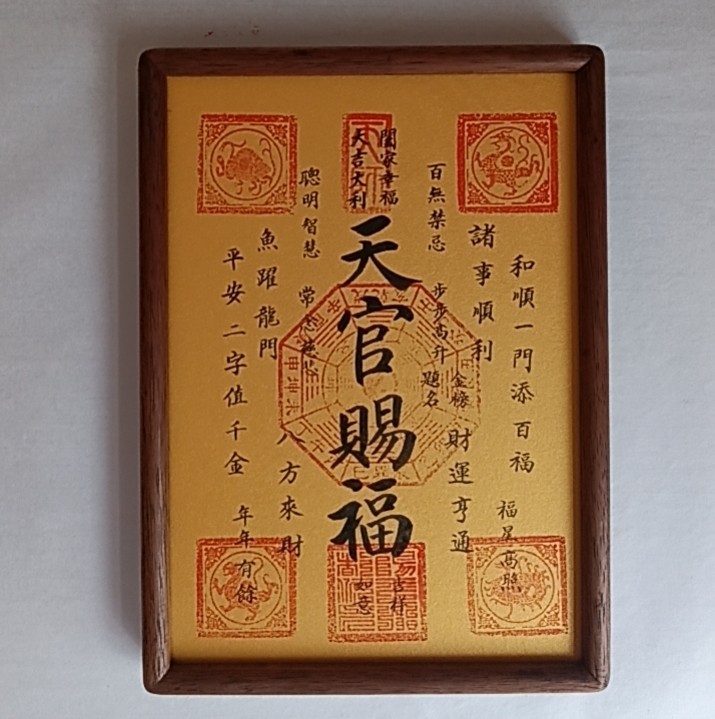 和順一門添百福
福星高照
諸事順利
財運亨通
百無禁忌
步步高升
金榜
題名
闔家幸福
大吉大利
天官賜福
吉祥
如意
聰明智慧
魚躍龍門
八方來財
平安二字值千金
年年有餘